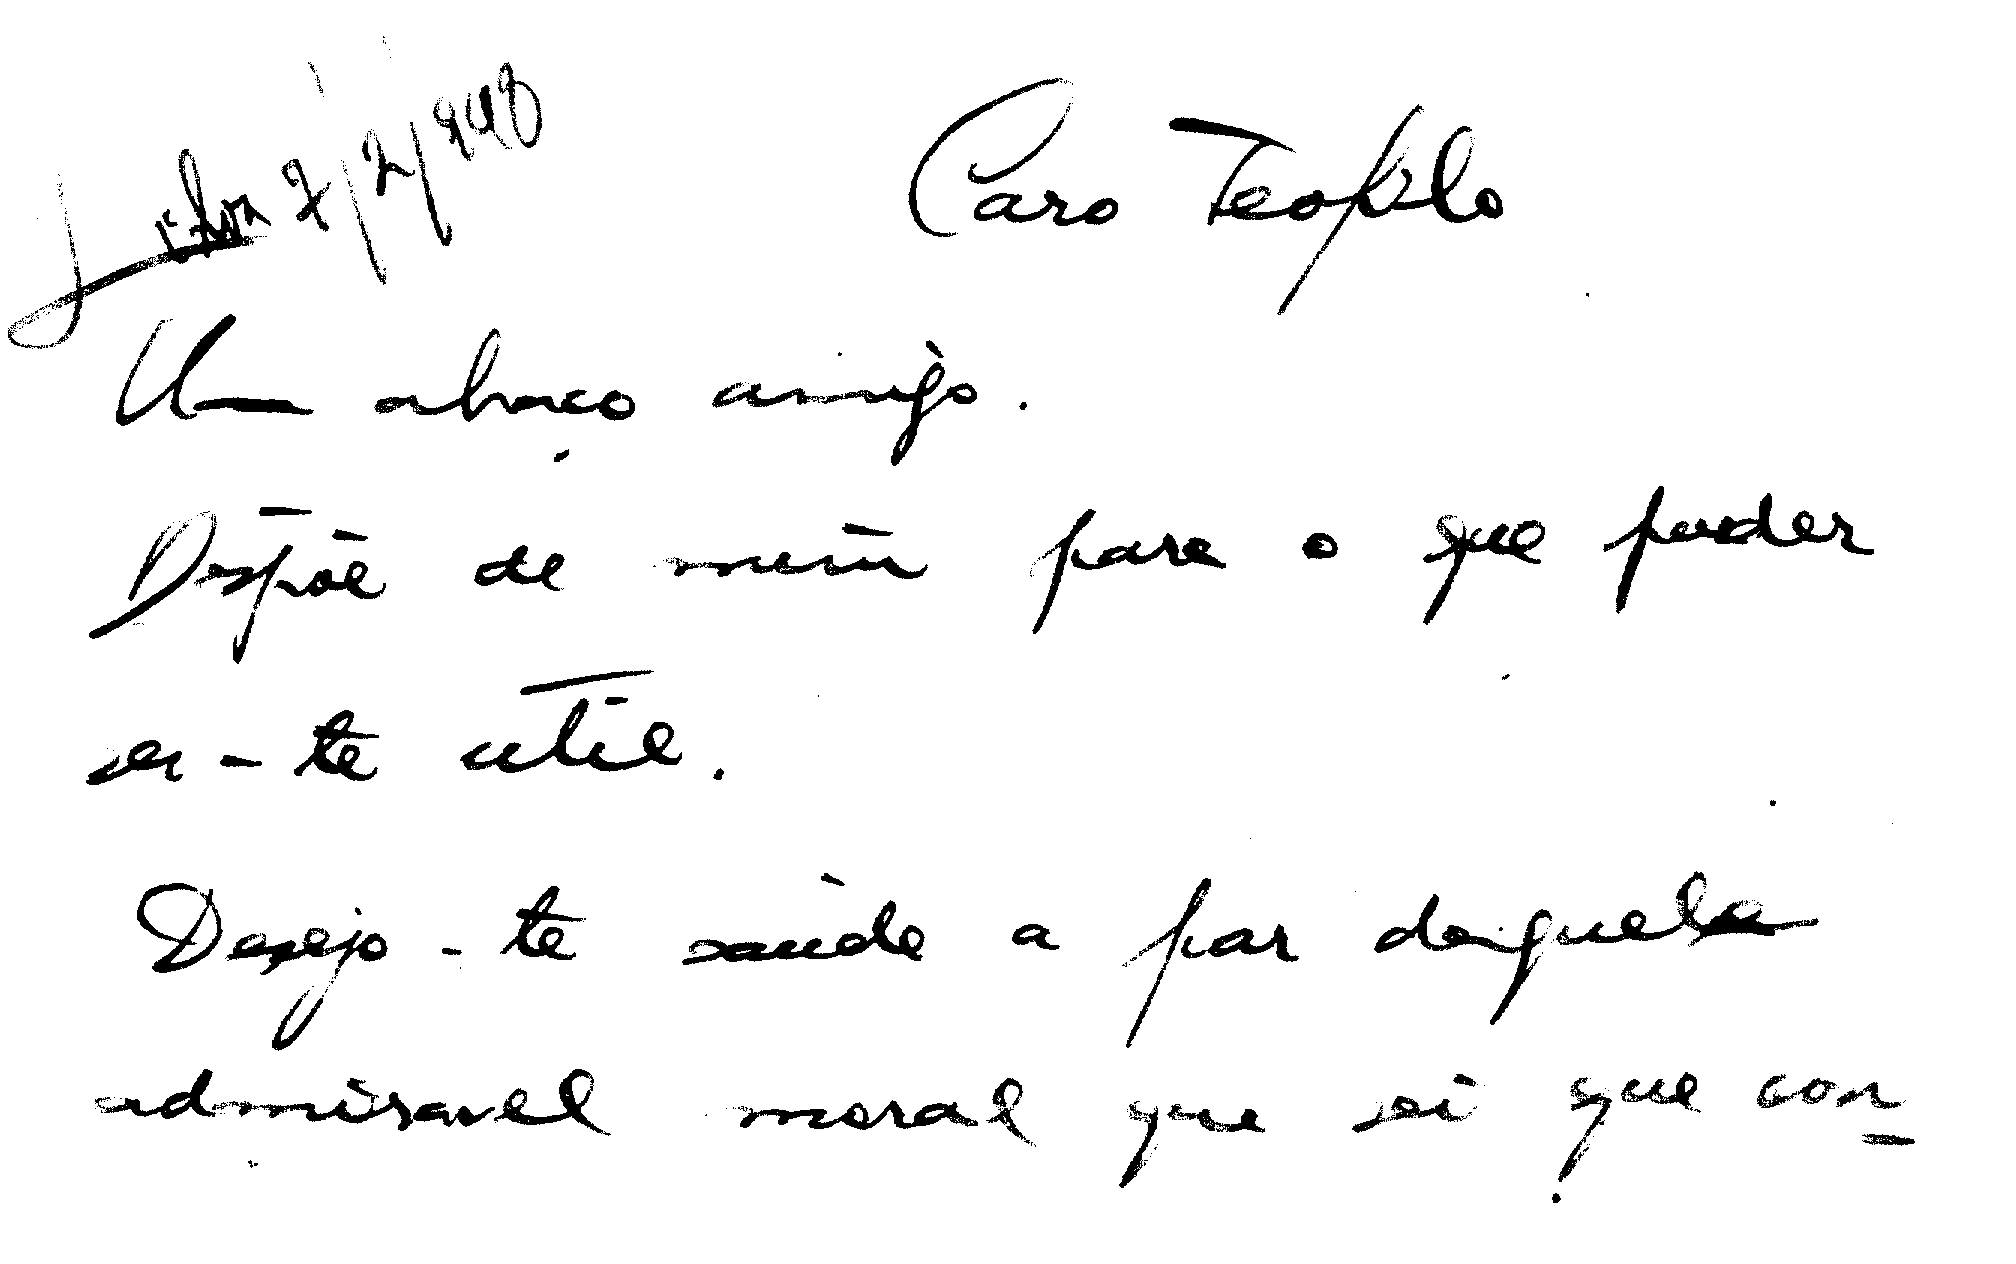 Lisboa 7/2/940
Caro Teofilo
Um abraço amigo.
Dispõe de mim para o que puder
ser-te útil.
Desejo-te saúde a par daquela
admiravel moral que sei que con_